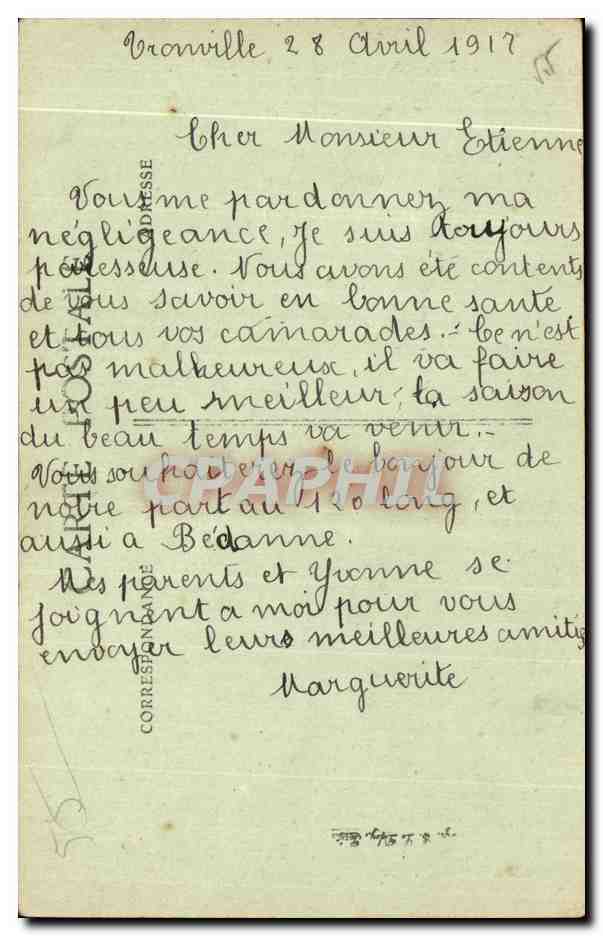 Tronville 28 Avril 1917
Cher Monsieur Etienne
Vous me pardonnez ma
négligeance, Je suis toujours
paresseuse. Nous avons été contents
de vous savoir en bonne santé
et tous vos camarades. - Ce n'est
pas malheureux, il va faire
un peu meilleur, la saison
du beau temps va venir. -
Vous souhaiterez le bonjour de
notre part au 120 long, et
aussi a Bédanne.
Mes parents et Yvonne se
joignent a moi pour vous
envoyer leurs meilleures amitiés
Marguerite
CARTE POSTALE
CORRESPONDANCE
ADRESSE
CPAPHIL
55